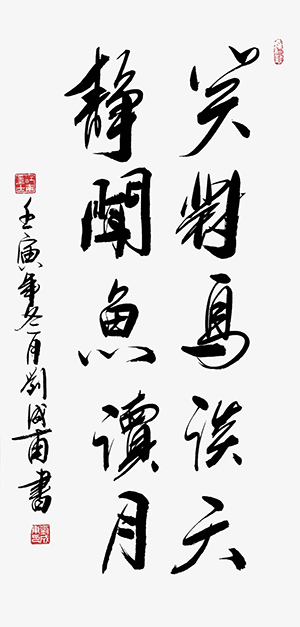 笑對鳥談天
靜聞魚讀月
壬寅年冬月劉成甫書